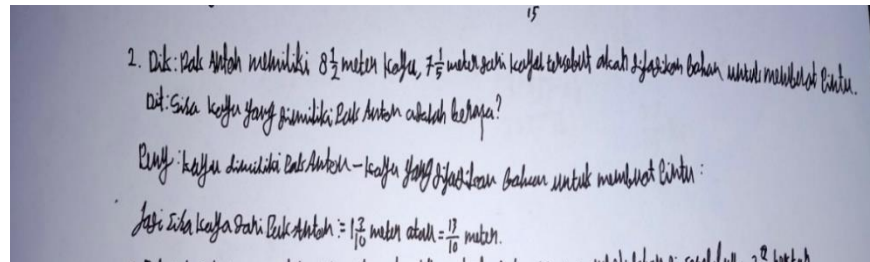 15
2. Dik: Pak Anton memiliki 8 1/2 meter kayu, 7 1/5 meter dari kayu tersebut akan dijadikan bahan untuk membuat Pintu.
Dit: Sisa kayu yang dimiliki Pak Anton adalah berapa?
Peny: kayu dimiliki Pak Anton - kayu yang dijadikan bahan untuk membuat Pintu:
Jadi Sisa kayu dari Pak Anton = 1 3/10 meter atau = 13/10 meter.